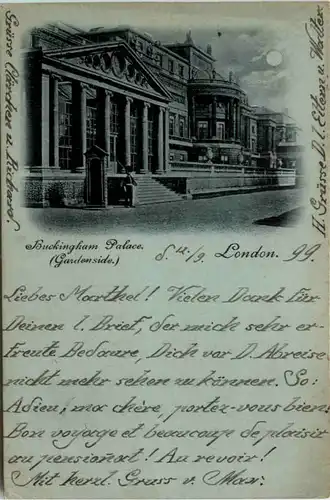 Buckingham Palace.
(Gardenside.)
d. 12./9. London. 99.
Liebes Marthel! Vielen Dank für
Deinen l. Brief, der mich sehr er-
freute. Bedaure, Dich vor D. Abreise
nicht mehr sehen zu können. So:
Adieu, ma chère, portez-vous bien,
Bon voyage et beaucoup de plaisir
au pensionat! Au revoir!
Mit herzl. Gruss v. Max.
Grüsse Clärchen u.
H. Grüsse D. l. Eltern u.